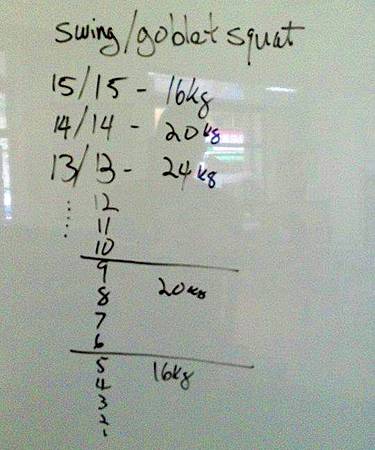 swing/goblet squat
15/15 - 16kg
14/14 - 20kg
13/13 - 24kg
12
11
10
9
8 20kg
7
6
5 16kg
4
3
2
1